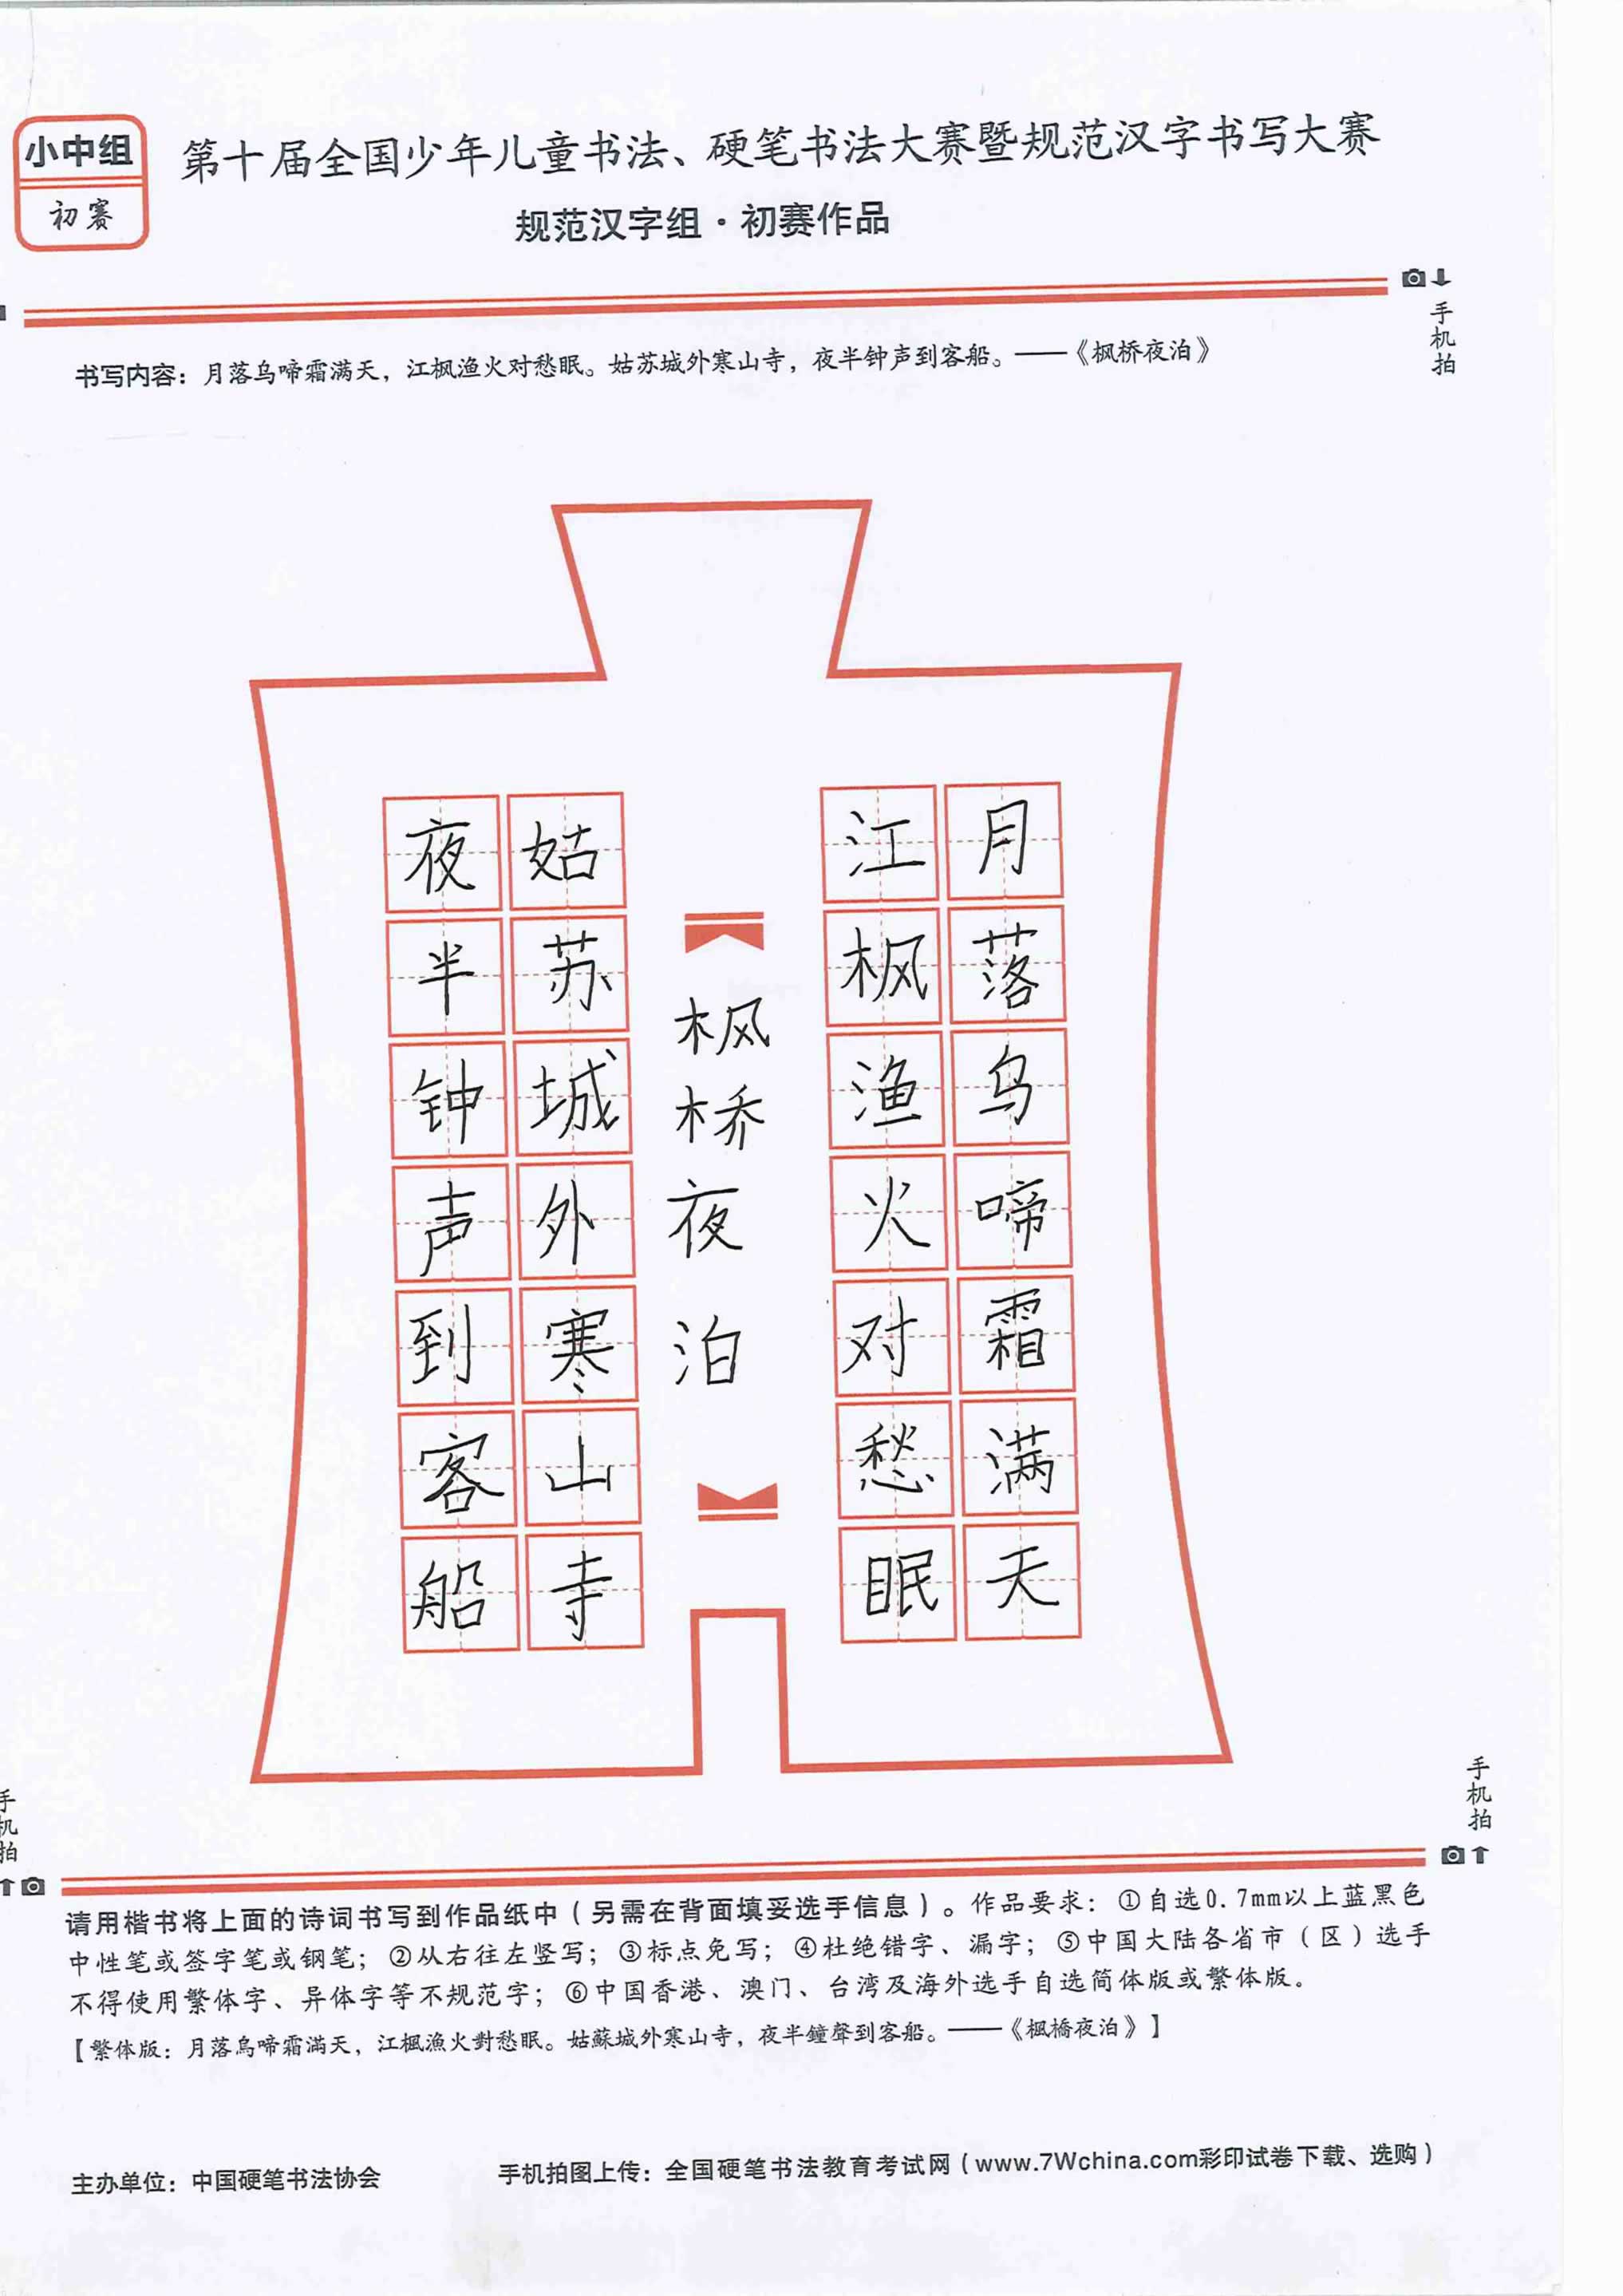 小中组
初赛
第十届全国少年儿童书法、硬笔书法大赛暨规范汉字书写大赛
规范汉字组·初赛作品
手机拍
书写内容：月落乌啼霜满天，江枫渔火对愁眠。姑苏城外寒山寺，夜半钟声到客船。——《枫桥夜泊》
月落乌啼霜满天
江枫渔火对愁眠
枫桥夜泊
姑苏城外寒山寺
夜半钟声到客船
手机拍
手机拍
请用楷书将上面的诗词书写到作品纸中（另需在背面填妥选手信息）。作品要求：①自选0.7mm以上蓝黑色
中性笔或签字笔或钢笔；②从右往左竖写；③标点免写；④杜绝错字、漏字；⑤中国大陆各省市（区）选手
不得使用繁体字、异体字等不规范字；⑥中国香港、澳门、台湾及海外选手自选简体版或繁体版。
【繁体版：月落烏啼霜滿天，江楓漁火對愁眠。姑蘇城外寒山寺，夜半鐘聲到客船。——《楓橋夜泊》】
主办单位：中国硬笔书法协会
手机拍图上传：全国硬笔书法教育考试网（www.7Wchina.com彩印试卷下载、选购）